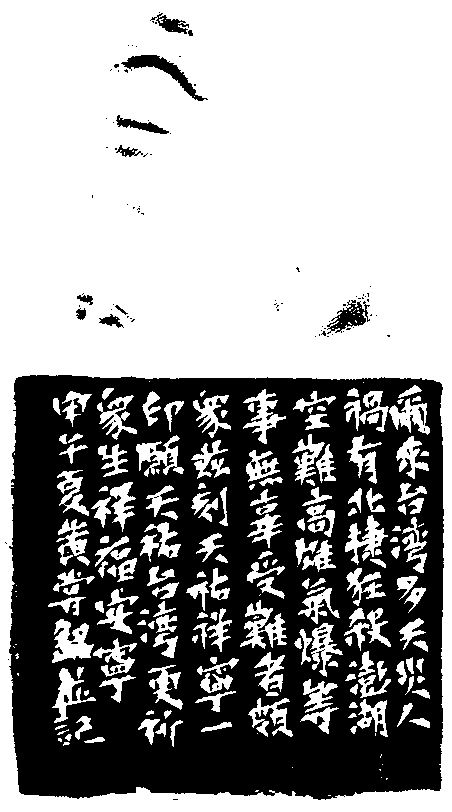 爾來台湾多天災人
禍有北捷狂殺澎湖
空難高雄氣爆等
事無辜受難者頗
眾茲刻天祐祥寧一
印願天祐台湾更祈
眾生祥福安寧
甲午夏黃嘗記